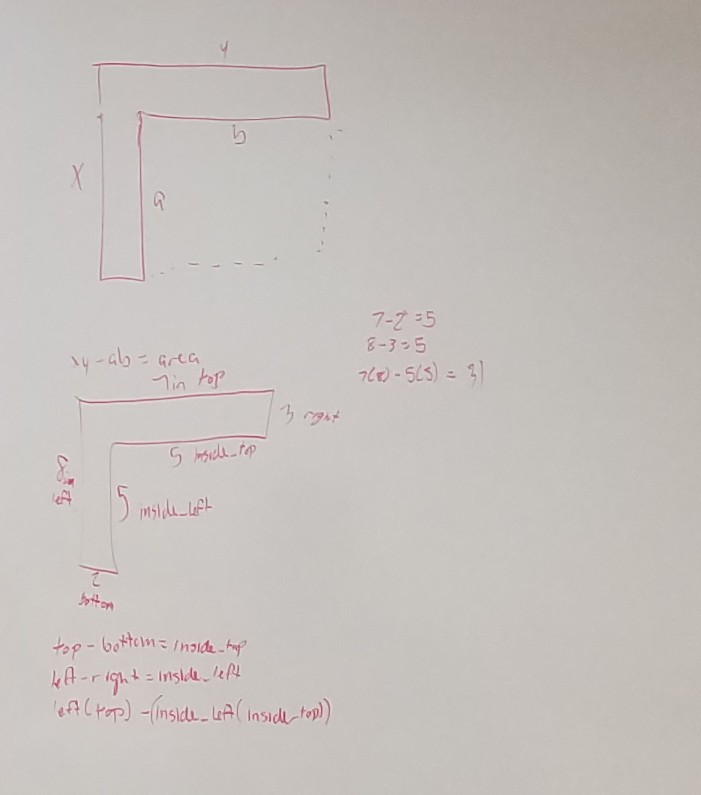 y
b
X
a
7-2=5
8-3=5
xy-ab = area
7(8)-5(5) = 31
7in top
3 right
5 inside_top
8in
left
5 inside_left
2
bottom
top - bottom = inside_top
left - right = inside_left
left(top) - (inside_left(inside_top))